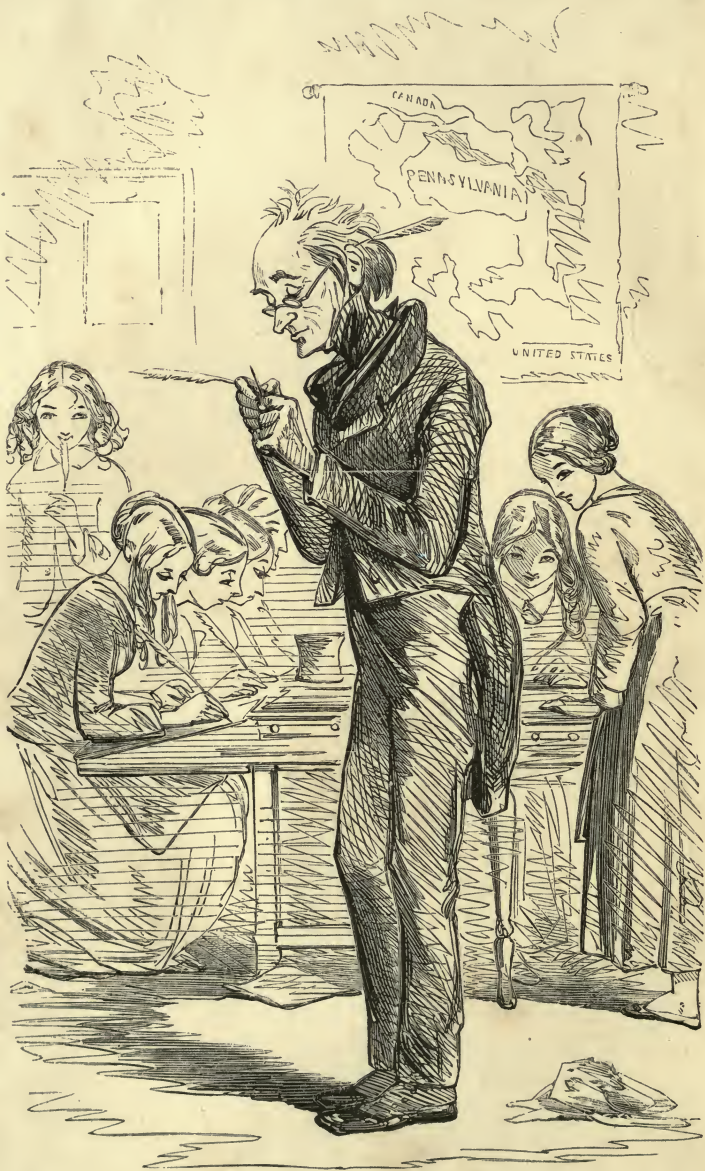 CANADA
PENNSYLVANIA
UNITED STATES